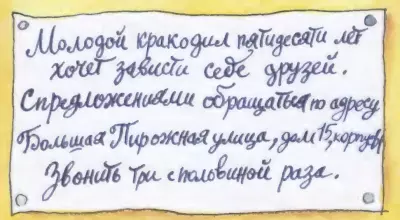 Молодой кракодил пятидесяти лет
хочет зависти себе друзей.
Спредложениями обращаться по адресу
Большая Пирожная улица, дом 15, корпус
Звонить три с половиной раза.